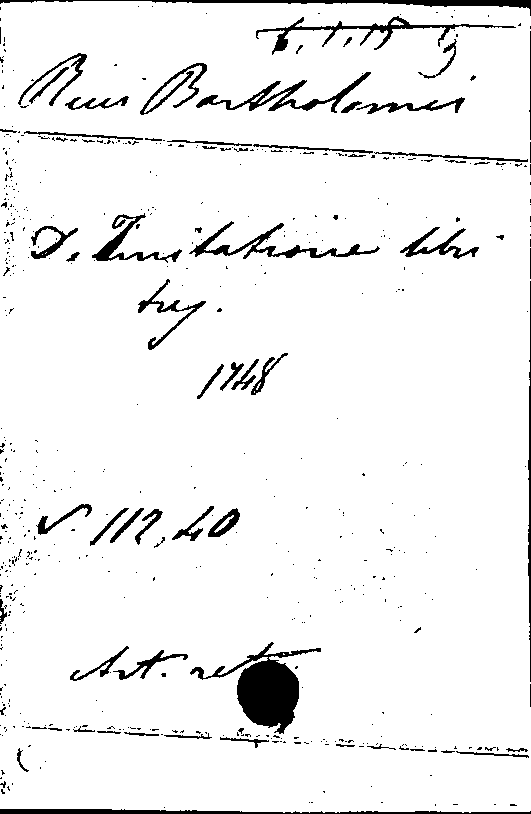 6.1.15
Ricci Bartholomei
D. Imitatione libri
tres.
1748
V. 112,40
Art. ret.